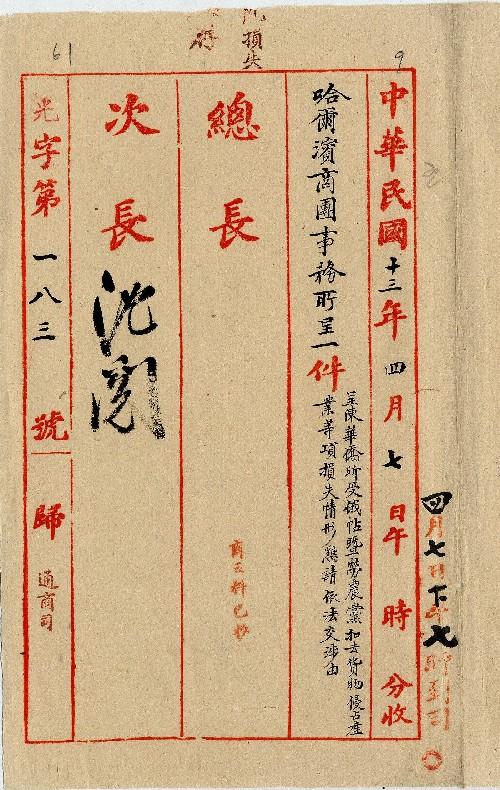 損失
9
61
中華民國十三年四月七日午時分收
哈爾濱商團事務所呈一件
呈陳華僑所受俄帖暨勞農黨扣去貨物侵占產
業等項損失情形懇請依法交涉由
總長
商三科已抄
次長
沈閱
光字第一八三號歸通商司
四月七日下午七時到司